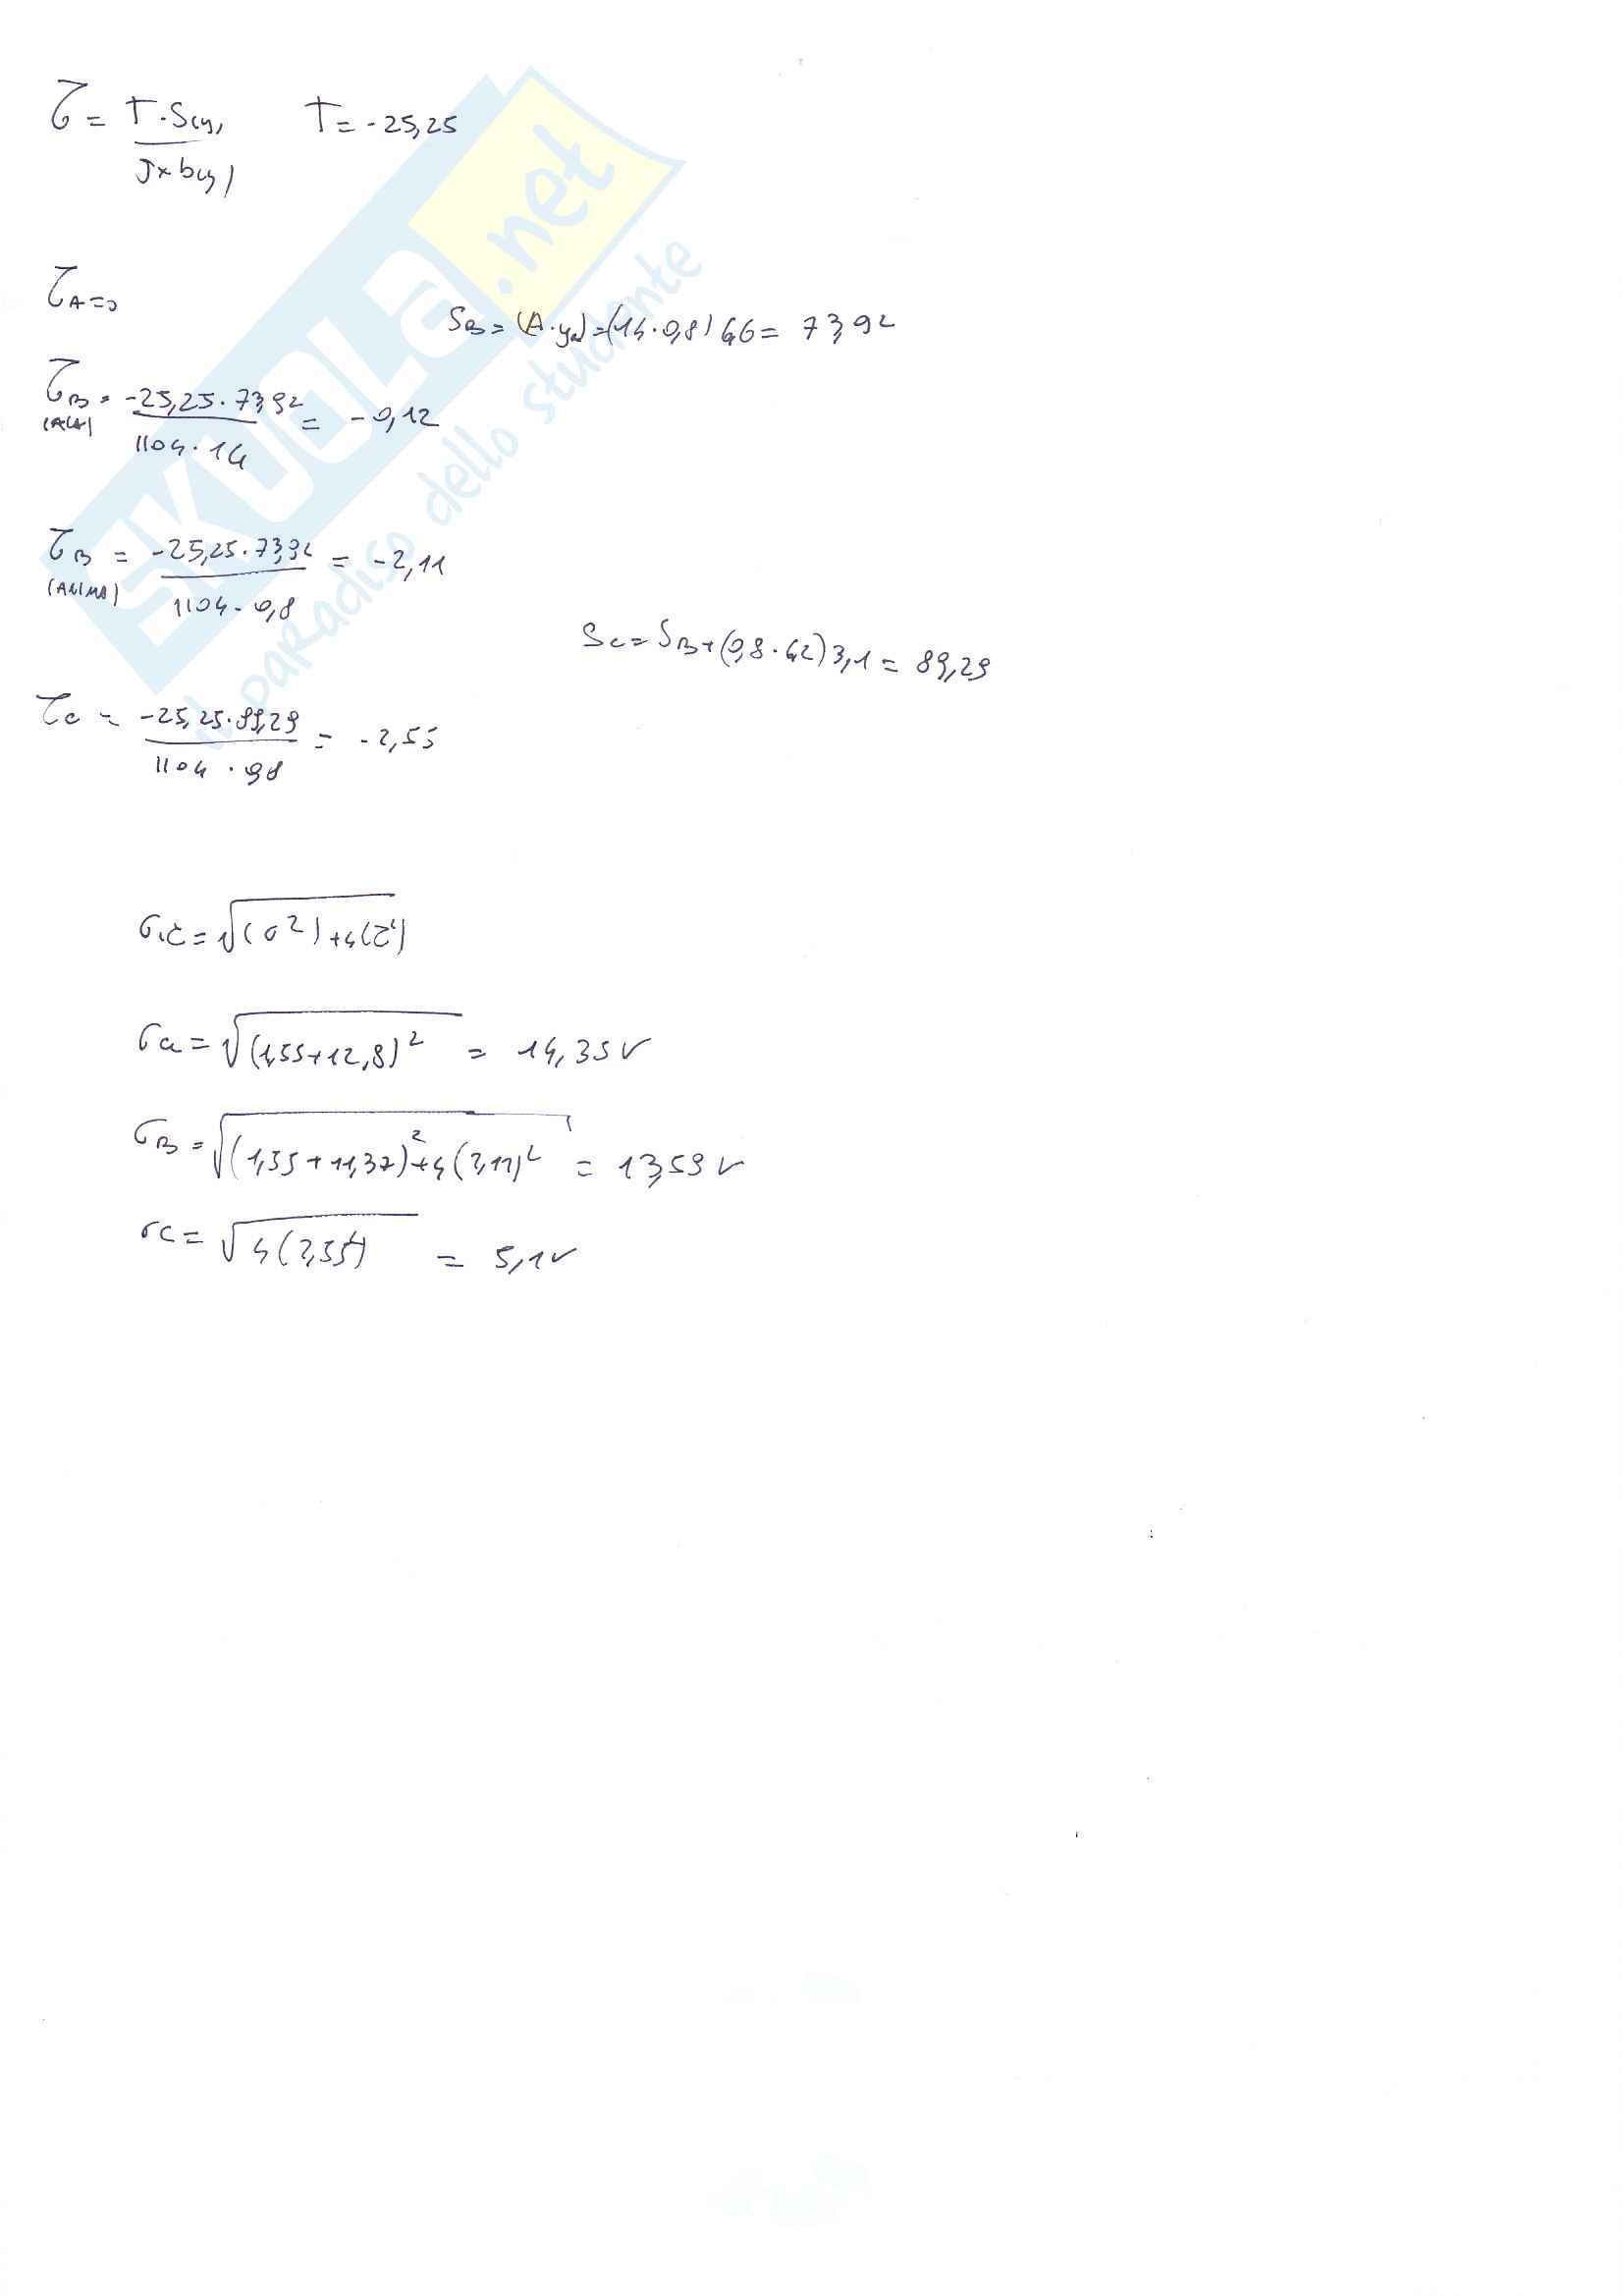 τ = T·S(y) / Jx b(y)    T = -25,25
τA = 0
SB = (A·ya) = (14·0,8) 6,6 = 73,92
τB (ALA) = -25,25·73,92 / 1104·14 = -0,12
τB (ANIMA) = -25,25·73,92 / 1104·0,8 = -2,11
Sc = SB + (0,8·6,2) 3,1 = 89,29
τc = -25,25·89,29 / 1104·0,8 = -2,55
σid = √(σ²)+4(τ²)
σa = √(1,55+12,8)² = 14,35 √
σB = √(1,55+11,37)²+4(2,11)² = 13,59 √
σc = √4(2,55²) = 5,1 √
SKUOLa.net
il paradiso dello studente